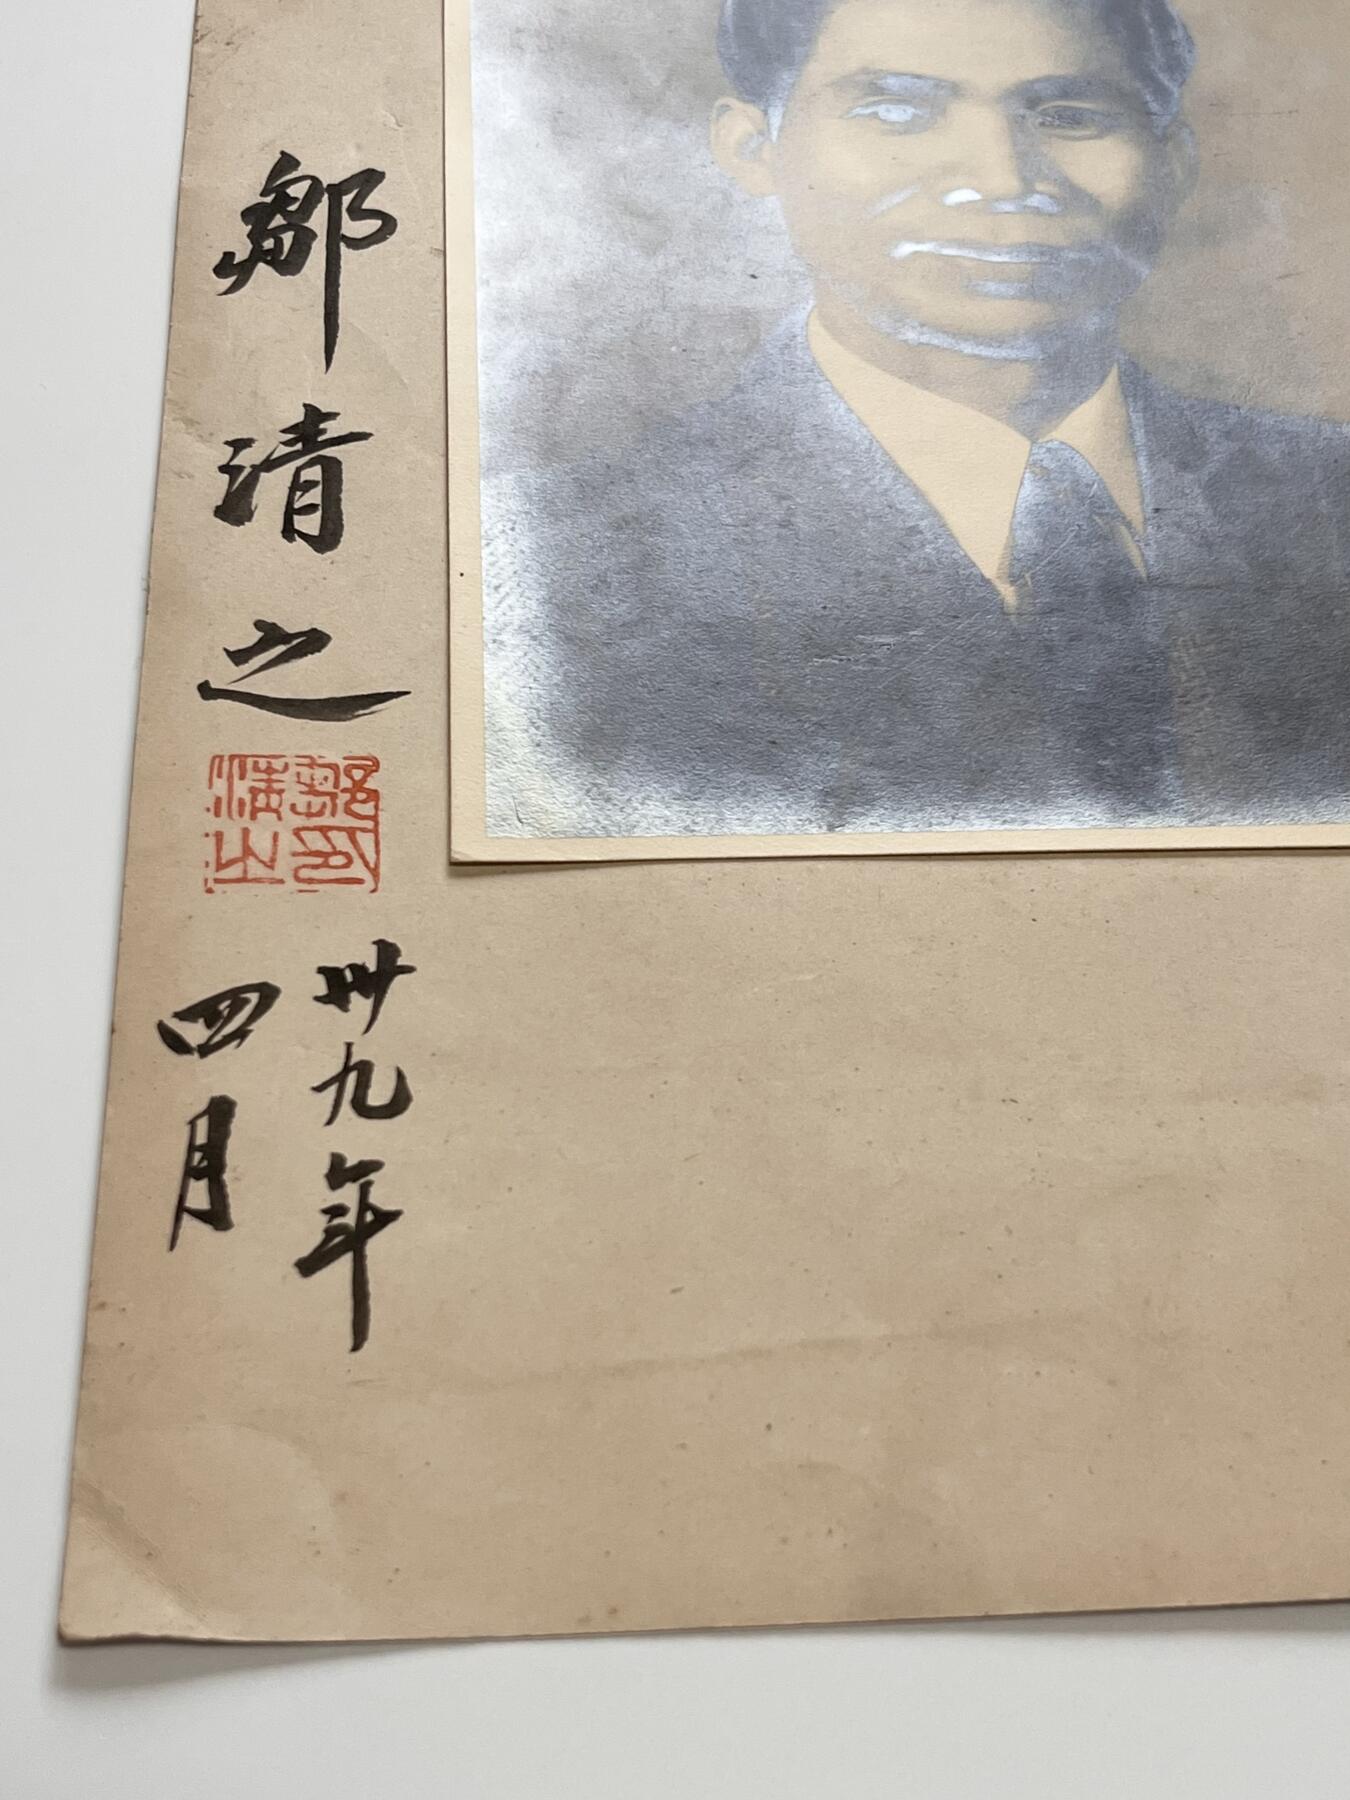 鄒清之
鄒印
清之
卅九年
四月